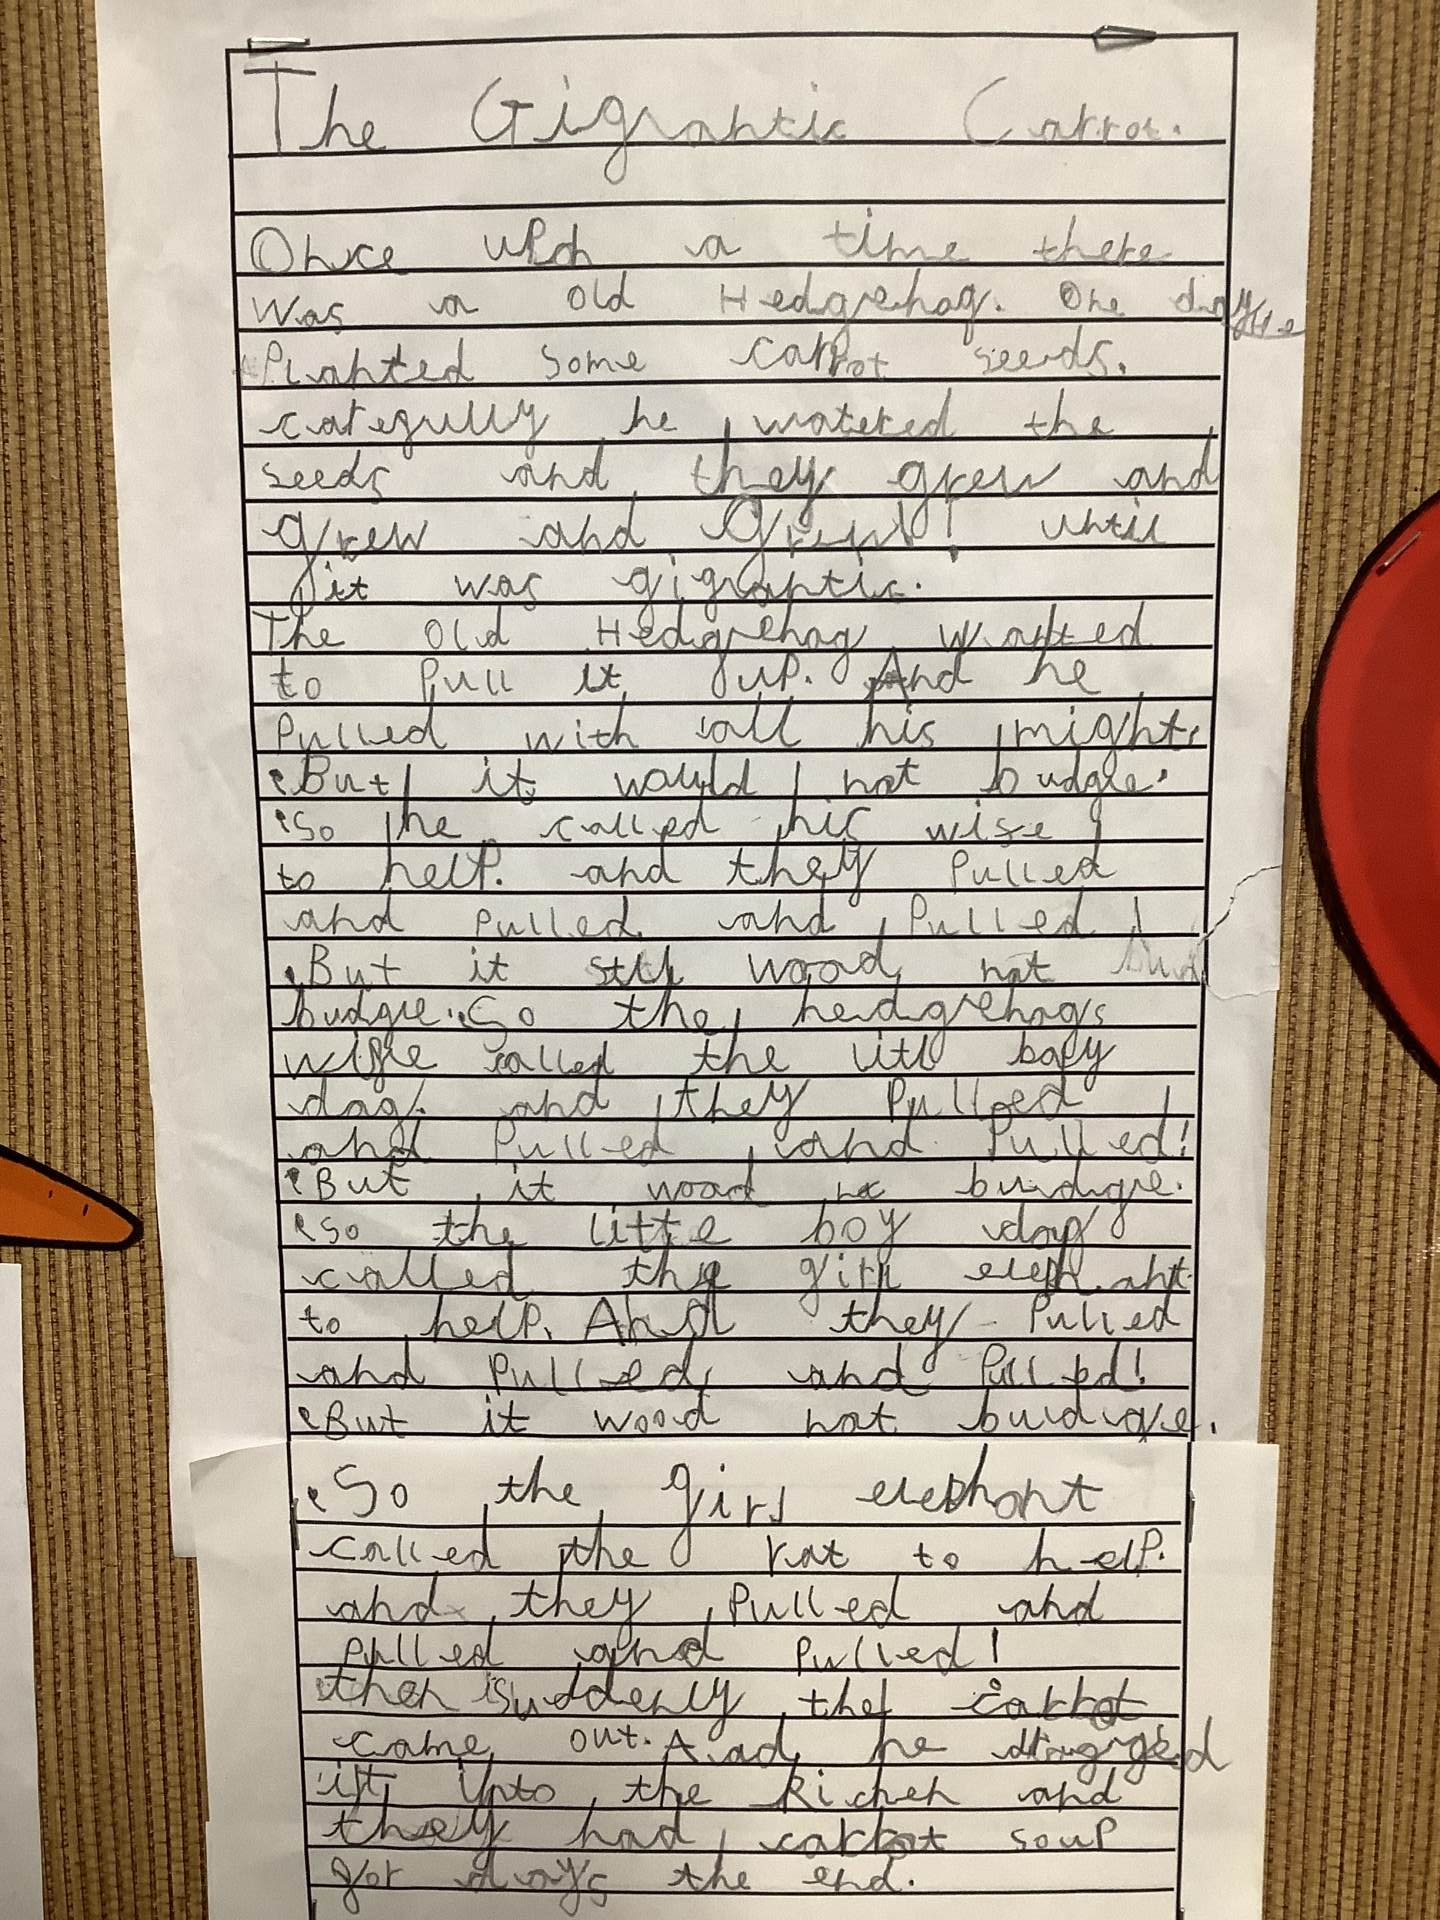 The Gigantic Carrot.
Once upon a time there
was a old Hedgehog. One day He
Planted some carrot seeds.
carefully he watered the
seeds and they grew and
grew and Grew! until
it was gigantic.
The old Hedgehog wanted
to Pull it up. And he
Pulled with all his might.
But it would not budge.
So he called his wife
to help. and they Pulled
and pulled and Pulled!
But it still wood not
budge. So the hedgehogs
wife called the litl boy
dog. and they Pulled
and Pulled and Pulled!
But it wood not budge.
so the little boy dog
called the girl elephant
to help. And they Pulled
and Pulled and Pulled!
But it wood not budge.
So the girl elephant
called the rat to help.
and they Pulled and
pulled and Pulled!
then suddenly the carrot
came out. And he dragged
it into the kichen and
they had carrot soup
for days the end.